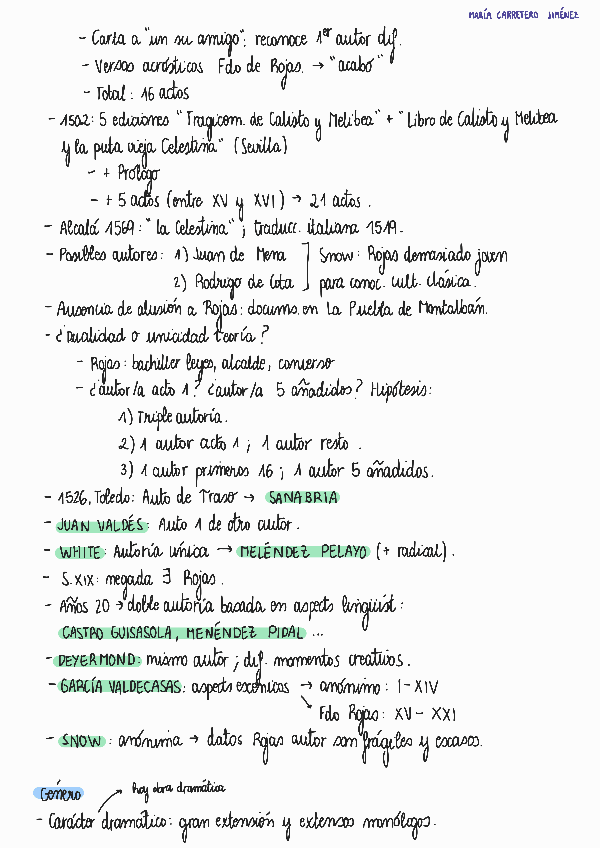 MARÍA CARRETERO JIMÉNEZ
- Carta a "un su amigo": reconoce 1er autor dif.
- Versos acrósticos Fdo de Rojas. → "acabó"
- Total: 16 actos
- 1502: 5 ediciones "Tragicom. de Calisto y Melibea" + "Libro de Calisto y Melibea
y la puta vieja Celestina" (Sevilla)
- + Prólogo
- + 5 actos (entre XV y XVI) → 21 actos.
- Alcalá 1569: "la Celestina"; traducc. italiana 1519.
- Posibles autores: 1) Juan de Mena ] Snow: Rojas demasiado joven
2) Rodrigo de Cota ] para conoc. cult. clásica.
- Ausencia de alusión a Rojas: docums. en La Puebla de Montalbán.
- ¿Dualidad o unicidad teoría?
- Rojas: bachiller leyes, alcalde, converso
- ¿autor/a acto 1? ¿autor/a 5 añadidos? Hipótesis:
1) Triple autoría.
2) 1 autor acto 1; 1 autor resto.
3) 1 autor primeros 16; 1 autor 5 añadidos.
- 1526, Toledo: Auto de Traso → SANABRIA
- JUAN VALDÉS: Auto 1 de otro autor.
- WHITE: Autoría única → MELÉNDEZ PELAYO (+ radical).
- S.XIX: negada ∃ Rojas.
- Años 20 → doble autoría basada en aspects lingüíst:
CASTRO GUISASOLA, MENÉNDEZ PIDAL ...
- DEYERMOND: mismo autor; dif. momentos creativos.
- GARCÍA VALDECASAS: aspects escénicos → anónimo: I-XIV
↘ Fdo Rojas: XV - XXI
- SNOW: anónima → datos Rojas autor son frágiles y escasos.
Género → hoy obra dramática
- Carácter dramático: gran extensión y extensos monólogos.